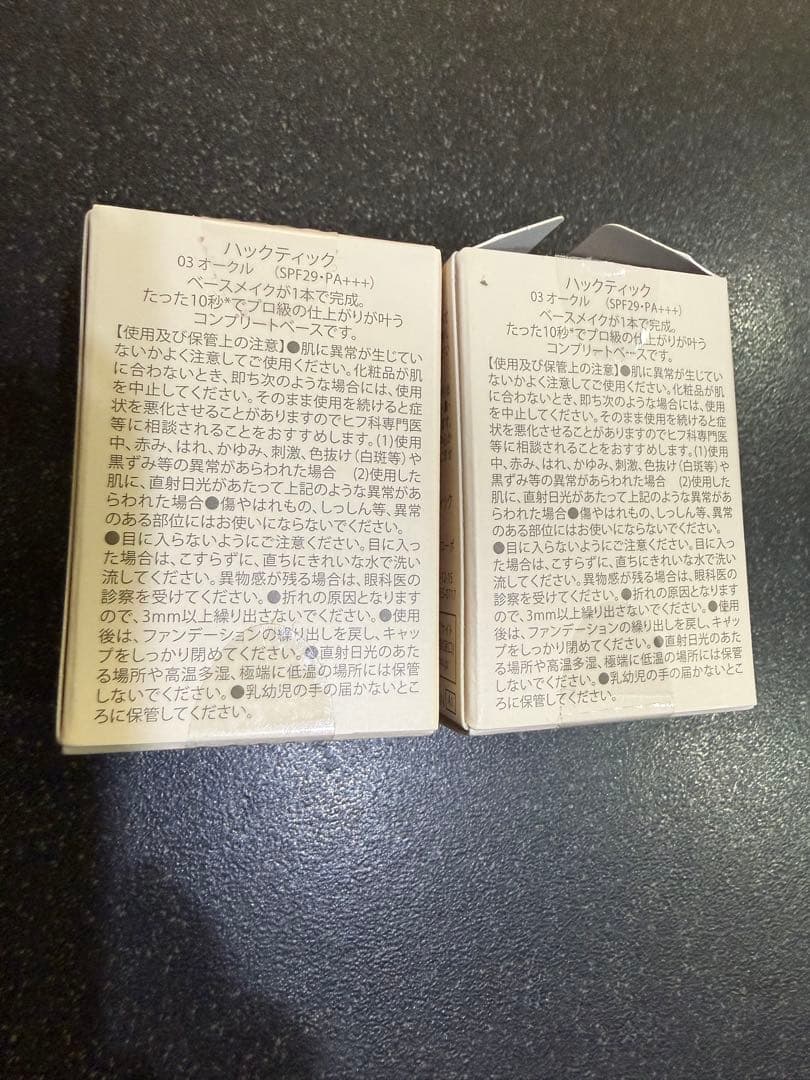 ハックティック
03 オークル （SPF29・PA+++）
ベースメイクが1本で完成。
たった10秒*でプロ級の仕上がりが叶う
コンプリートベースです。
【使用及び保管上の注意】●肌に異常が生じてい
ないかよく注意してご使用ください。化粧品が肌
に合わないとき、即ち次のような場合には、使用
を中止してください。そのまま使用を続けると症
状を悪化させることがありますのでヒフ科専門医
等に相談されることをおすすめします。(1)使用
中、赤み、はれ、かゆみ、刺激、色抜け（白斑等）や
黒ずみ等の異常があらわれた場合 (2)使用した
肌に、直射日光があたって上記のような異常があ
らわれた場合●傷やはれもの、しっしん等、異常
のある部位にはお使いにならないでください。
●目に入らないようにご注意ください。目に入っ
た場合は、こすらずに、直ちにきれいな水で洗い
流してください。異物感が残る場合は、眼科医の
診察を受けてください。●折れの原因となります
ので、3mm以上繰り出さないでください。●使用
後は、ファンデーションの繰り出しを戻し、キャッ
プをしっかり閉めてください。●直射日光のあた
る場所や高温多湿、極端に低温の場所には保管
しないでください。●乳幼児の手の届かないとこ
ろに保管してください。
ハックティック
03 オークル （SPF29・PA+++）
ベースメイクが1本で完成。
たった10秒*でプロ級の仕上がりが叶う
コンプリートベースです。
【使用及び保管上の注意】●肌に異常が生じてい
ないかよく注意してご使用ください。化粧品が肌
に合わないとき、即ち次のような場合には、使用
を中止してください。そのまま使用を続けると症
状を悪化させることがありますのでヒフ科専門医
等に相談されることをおすすめします。(1)使用
中、赤み、はれ、かゆみ、刺激、色抜け（白斑等）や
黒ずみ等の異常があらわれた場合 (2)使用した
肌に、直射日光があたって上記のような異常があ
らわれた場合●傷やはれもの、しっしん等、異常
のある部位にはお使いにならないでください。
●目に入らないようにご注意ください。目に入っ
た場合は、こすらずに、直ちにきれいな水で洗い
流してください。異物感が残る場合は、眼科医の
診察を受けてください。●折れの原因となります
ので、3mm以上繰り出さないでください。●使用
後は、ファンデーションの繰り出しを戻し、キャッ
プをしっかり閉めてください。●直射日光のあた
る場所や高温多湿、極端に低温の場所には保管
しないでください。●乳幼児の手の届かないとこ
ろに保管してください。